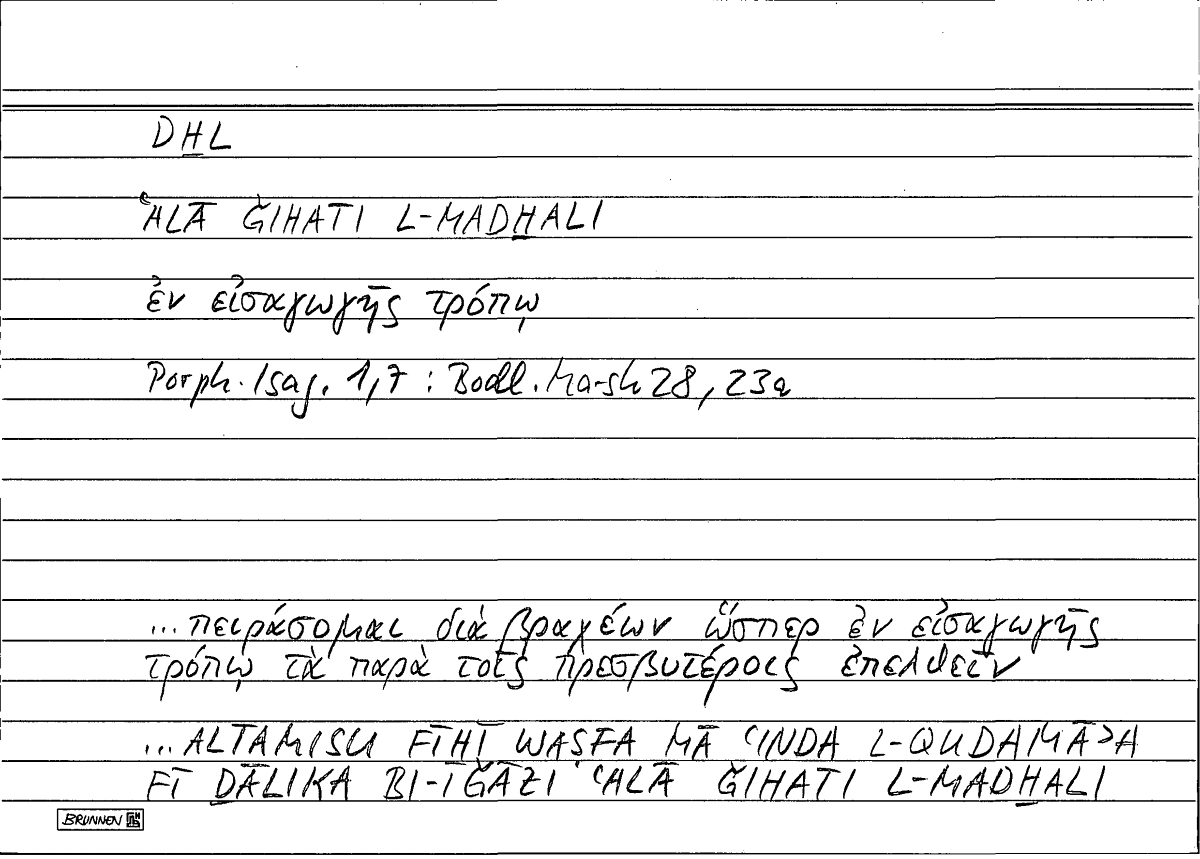 DH̲L
ʿALĀ ǦIHATI L-MADH̲ALI
ἐν εἰσαγωγῆς τρόπῳ
Porph. Isag. 1,7 : Bodl. Marsh 28, 23a
...πειράσομαι διὰ βραχέων ὥσπερ ἐν εἰσαγωγῆς
τρόπῳ τὰ παρὰ τοῖς πρεσβυτέροις ἐπελθεῖν
...ALTAMISU FĪHĪ WAṢFA MĀ ʿINDA L-QUDAMĀʾA
FĪ D̲ĀLIKA BI-ĪǦĀZI ʿALĀ ǦIHATI L-MADH̲ALI
BRUNNEN